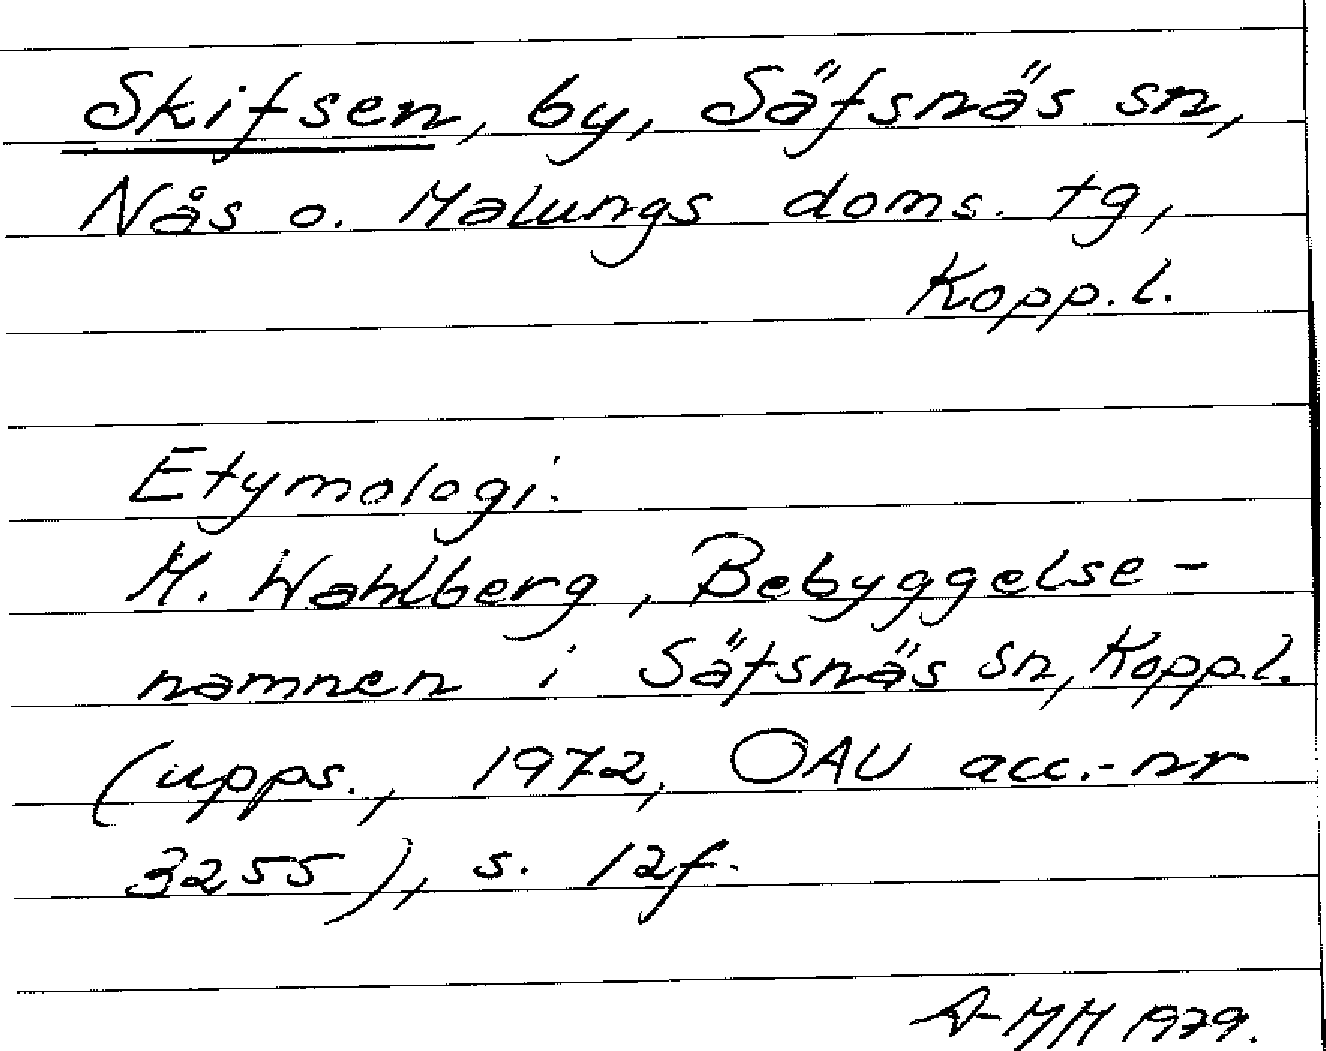 Skifsen, by, Säfsnäs sn,
Nås o. Malungs doms. tg,
Kopp.l.
Etymologi:
M. Wahlberg, Bebyggelse-
namnen i Säfsnäs sn, Kopp.l.
(upps., 1972, OAU acc.-nr
3255), s. 12f.
A-MM 1979.